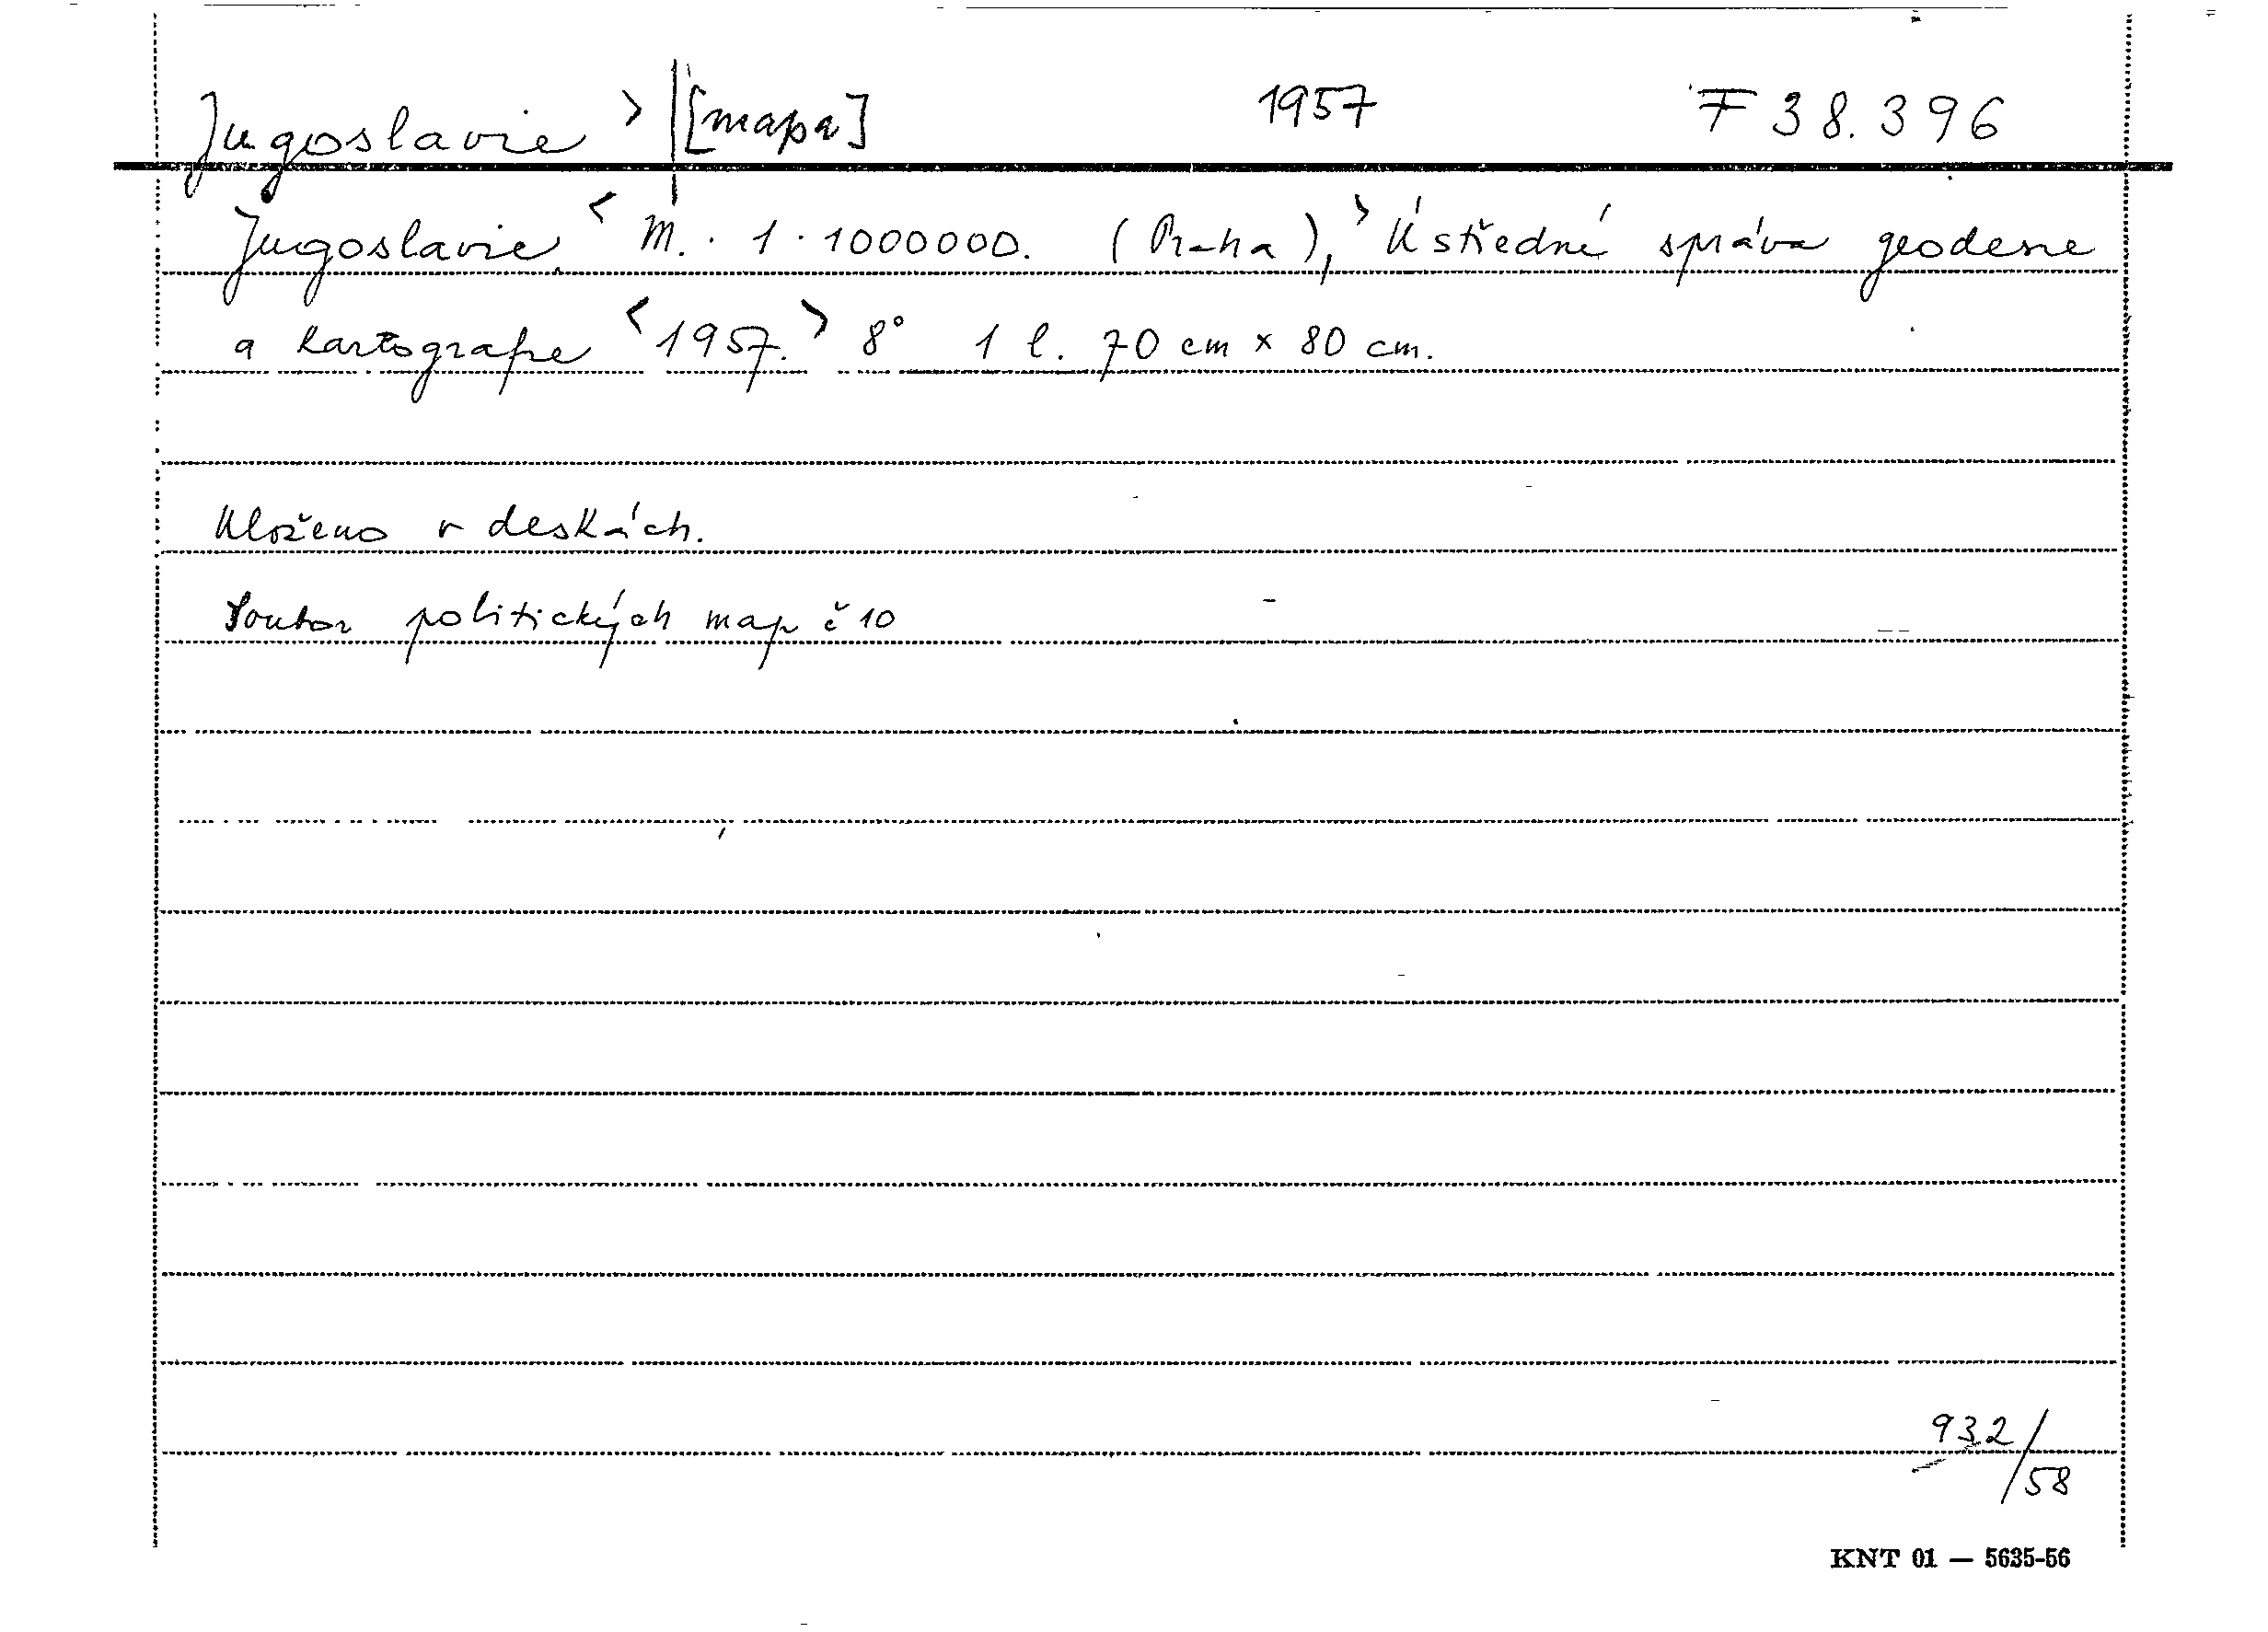 Jugoslavie > | [mapa] 1957 F 38.396
Jugoslavie. < M. 1 : 1000000. (Praha), > Ústřední správa geodesie
a kartografie < 1957. > 8° 1 l. 70 cm x 80 cm.
Uloženo v deskách.
Soubor politických map č 10
932/58
KNT 01 — 5635-56